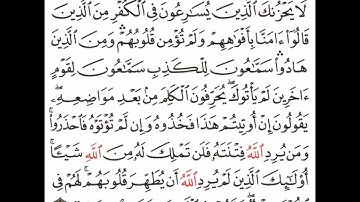 لَا يَحْزُنكَ ٱلَّذِينَ يُسَٰرِعُونَ فِى ٱلْكُفْرِ مِنَ ٱلَّذِينَ
قَالُوٓا۟ ءَامَنَّا بِأَفْوَٰهِهِمْ وَلَمْ تُؤْمِن قُلُوبُهُمْ ۛ وَمِنَ ٱلَّذِينَ
هَادُوا۟ ۛ سَمَّٰعُونَ لِلْكَذِبِ سَمَّٰعُونَ لِقَوْمٍ
ءَاخَرِينَ لَمْ يَأْتُوكَ ۖ يُحَرِّفُونَ ٱلْكَلِمَ مِنۢ بَعْدِ مَوَاضِعِهِۦ ۖ
يَقُولُونَ إِنْ أُوتِيتُمْ هَٰذَا فَخُذُوهُ وَإِن لَّمْ تُؤْتَوْهُ فَٱحْذَرُوا۟ ۚ
وَمَن يُرِدِ ٱللَّهُ فِتْنَتَهُۥ فَلَن تَمْلِكَ لَهُۥ مِنَ ٱللَّهِ شَيْـًٔا ۚ
أُو۟لَٰٓئِكَ ٱلَّذِينَ لَمْ يُرِدِ ٱللَّهُ أَن يُطَهِّرَ قُلُوبَهُمْ ۚ لَهُمْ فِى